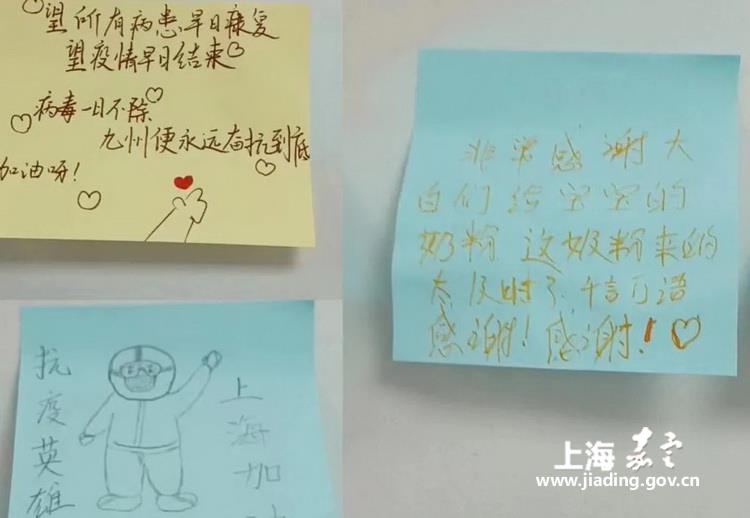 望所有病患早日康复
望疫情早日结束
病毒一日不除
九州便永远奋抗到底
加油呀!
非常感谢大
白们给宝宝的
奶粉 这奶粉来的
太及时了,千言万语
感谢!感谢!
抗疫英雄
上海加
上海嘉定
www.jiading.gov.cn